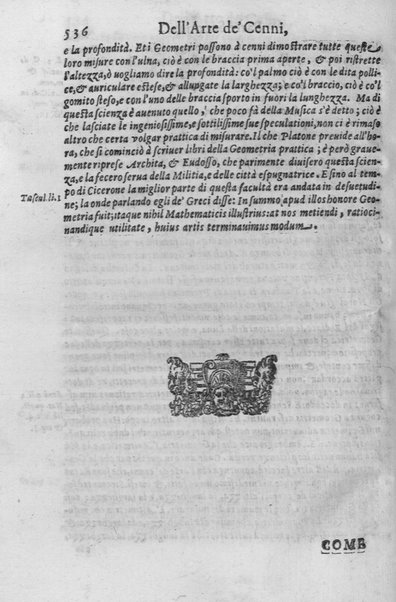 536 Dell'Arte de' Cenni,
e la profondità. Et i Geometri possono à cenni dimostrare tutte queste
loro misure con l'ulna, ciò è con le braccia prima aperte, & poi ristrette
l'altezza, ò uogliamo dire la profondità: co'l palmo ciò è con le dita polli-
ce, & auriculare estese, & allupgate la larghezza; e co'l braccio, ciò è co'l
gomito steso, e con l'uno delle braccia sporto in fuori la lunghezza. Ma di
questa scienza è auenuto quello, che poco fà della Musica s'è detto; ciò è
che lasciate le ingeniosissime, e sottilissime sue speculationi, non ci è rimaso
altro che certa volgar prattica di misurare. Il che Platone preuide all'ho-
ra, che si cominciò à scriuer libri della Geometria prattica; e però graue-
mente riprese Archita, & Eudosso, che parimente diuisero questa scien-
za, e la fecero serua della Militia, e delle città espugnatrice. E sino al tem-
Tuscul. li. 1 po di Cicerone la miglior parte di questa facultà era andata in desuetudi-
ne; la onde parlando egli de' Greci disse: In summo apud illos honore Geo-
metria fuit: itaque nihil Mathematicis illustrius: at nos metiendi, ratioci-
nandique utilitate, huius artis terminauimus modum.
COME